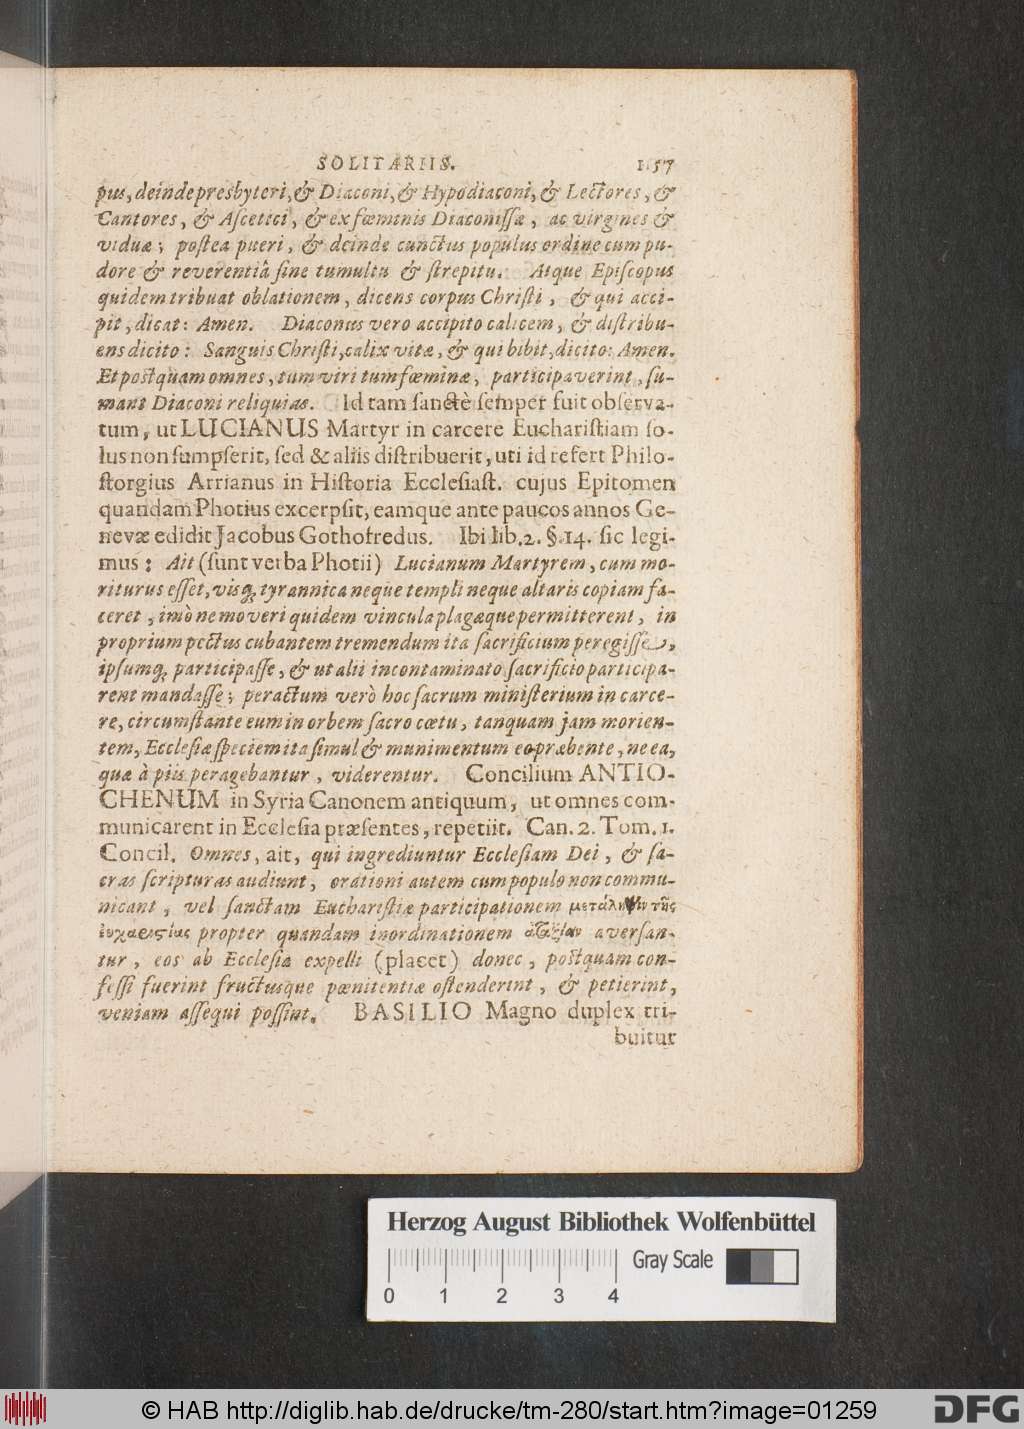 SOLITARIIS. 157
pus, deinde presbyteri, & Diaconi, & Hypodiaconi, & Lectores, &
Cantores, & Aſcetici, & ex fœminis Diaconiſſæ, ac virgines &
viduæ; poſtea pueri, & deinde cunctus populus ordine cum pu-
dore & reverentiâ ſine tumultu & ſtrepitu. Atque Epiſcopus
quidem tribuat oblationem, dicens corpus Chriſti, & qui acci-
pit, dicat: Amen. Diaconus vero accipito calicem, & diſtribu-
ens dicito: Sanguis Chriſti, calix vitæ, & qui bibit, dicito: Amen.
Et poſtquam omnes, tum viri tum fœminæ, participaverint, ſu-
mant Diaconi reliquias. Id tam ſanctè ſemper fuit obſerva-
tum, ut LUCIANUS Martyr in carcere Euchariſtiam ſo-
lus non ſumpſerit, ſed & aliis diſtribuerit, uti id refert Philo-
ſtorgius Arrianus in Hiſtoria Eccleſiaſt. cujus Epitomen
quandam Photius excerpſit, eamque ante paucos annos Ge-
nevæ edidit Jacobus Gothofredus. Ibi lib. 2. §. 14. ſic legi-
mus: Ait (ſunt verba Photii) Lucianum Martyrem, cum mo-
riturus eſſet, viſq; tyrannica neque templi neque altaris copiam fa-
ceret, imò ne moveri quidem vincula plagæque permitterent, in
proprium pectus cubantem tremendum ita ſacrificium peregiſſe,
ipſumq; participaſſe, & ut alii incontaminato ſacrificio participa-
rent mandaſſe; peractum verò hoc ſacrum miniſterium in carce-
re, circumſtante eum in orbem ſacro cœtu, tanquam jam morien-
tem, Eccleſiæ ſpeciem ita ſimul & munimentum eo præbente, ne ea,
quæ à piis peragebantur, viderentur. Concilium ANTIO-
CHENUM in Syria Canonem antiquum, ut omnes com-
municarent in Eccleſia præſentes, repetiit. Can. 2. Tom. 1.
Concil. Omnes, ait, qui ingrediuntur Eccleſiam Dei, & ſa-
cras ſcripturas audiunt, orationi autem cum populo non commu-
nicant, vel ſanctam Euchariſtiæ participationem μετάληψιν τῆς
εὐχαριςίας propter quandam inordinationem ἀταξίαν averſan-
tur, eos ab Eccleſia expelli (placet) donec, poſtquam con-
feſſi fuerint fructusque pœnitentiæ oſtenderint, & petierint,
veniam aſſequi poſſint. BASILIO Magno duplex tri-
buitur
Herzog August Bibliothek Wolfenbüttel
Gray Scale
0 1 2 3 4
© HAB http://diglib.hab.de/drucke/tm-280/start.htm?image=01259
DFG